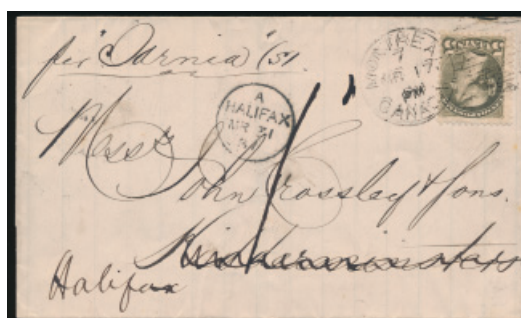 per "Sarnia" (s)
MONTREAL
MR 17
CANADA
A
HALIFAX
MR 31
Messrs
John Crossley & Sons.
Kidderminster
Halifax